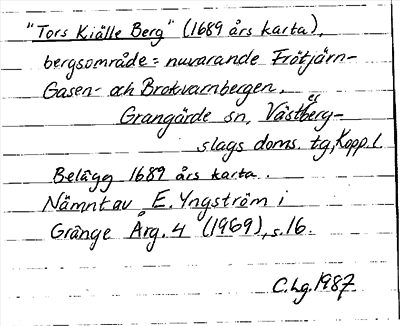 "Tors Kiälle Berg" (1689 års karta),
bergsområde = nuvarande Frötjärn-
Gasen- och Brokvarnbergen.
Grangärde sn, Västerberg-
slags doms. tg, Kopp. l.
Belägg 1689 års karta.
Nämnt av E. Yngström i
Gränge Årg. 4 (1969), s. 16.
C.Lg. 1987.